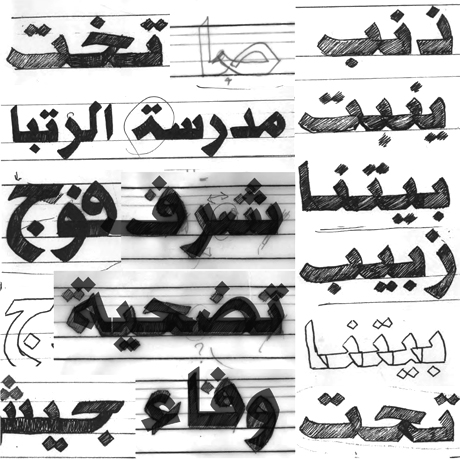 تخت
صا
ذنب
ينبت
مدرسة الرتبا
بيتنا
شرف
فوج
زبيب
تضحية
ج
بيتنا
وفاء
جيش
تحت